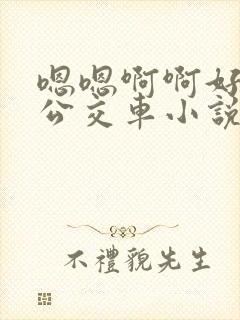 嗯嗯啊啊好
公交車小說
不禮貌先生